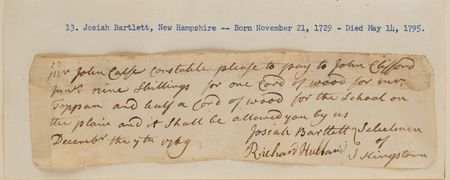 13. Josiah Bartlett, New Hampshire -- Born November 21, 1729 - Died May 14, 1795.
mr John Calfe Constable please to pay to John Clifford
Junr nine Shillings for one Cord of wood for mr
Tappan and half a Cord of wood for the School on
the plain and it Shall be allowed you by us
Decembr the 7th 1769 Josiah Bartlett Selectmen
Richard Hubbard of
Kingstown